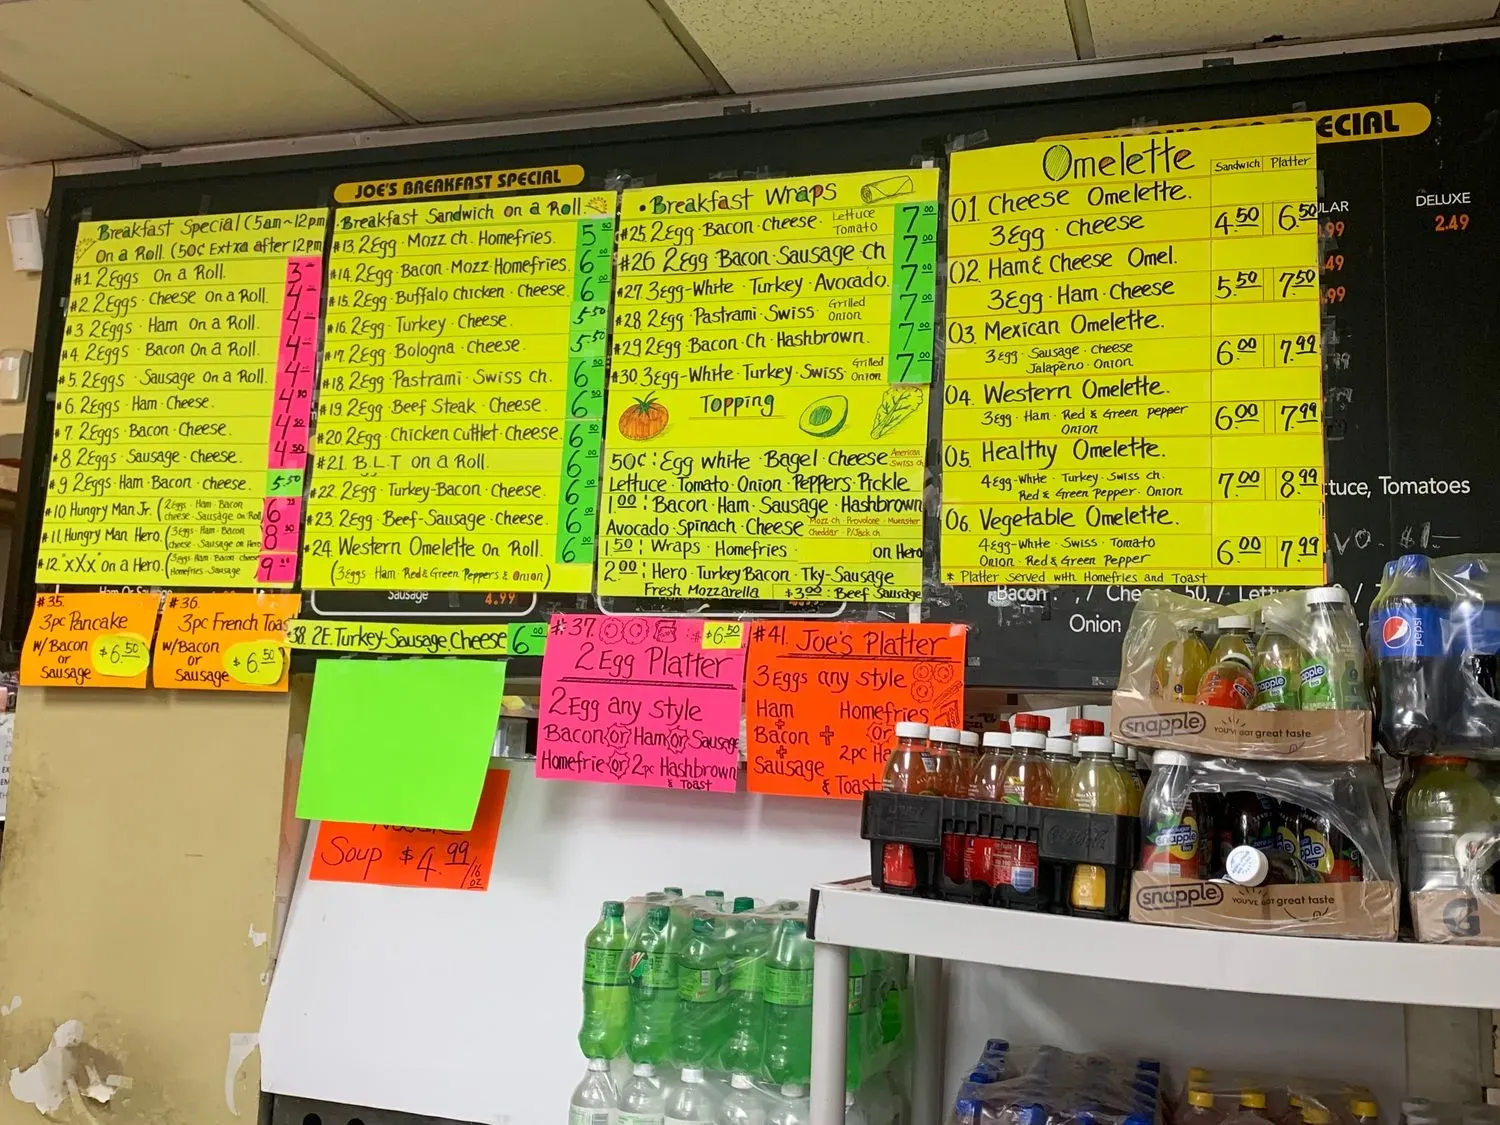 Breakfast Special (5am~12pm
On a Roll (50¢ Extra after 12pm
#1 2Eggs On a Roll.
#2 2Eggs · Cheese On a Roll.
#3 2Eggs · Ham On a Roll.
#4 2Eggs · Bacon On a Roll.
#5 2Eggs · Sausage On a Roll.
#6 2Eggs · Ham · Cheese.
#7 2Eggs · Bacon · Cheese.
#8 2Eggs · Sausage · Cheese.
#9 2Eggs · Ham · Bacon · Cheese. 5.50
#10 Hungry Man Jr. (2Eggs · Ham · Bacon
cheese · Sausage on Roll)
#11 Hungry Man Hero. (3Eggs · Ham · Bacon
cheese · Sausage on Hero)
#12. "xXx" on a Hero. Homefries · Sausage
JOE'S BREAKFAST SPECIAL
Breakfast Sandwich on a Roll.
#13 2Egg · Mozz ch. Homefries.
#14 2Egg · Bacon · Mozz · Homefries.
#15 2Egg · Buffalo chicken · Cheese.
#16 2Egg · Turkey · Cheese. 5.50
#17 2Egg · Bologna · Cheese. 5.50
#18 2Egg · Pastrami · Swiss ch.
#19 2Egg · Beef Steak · Cheese.
#20 2Egg · Chicken cuttlet · Cheese.
#21. B.L.T on a Roll.
#22 2Egg · Turkey-Bacon · Cheese.
#23 2Egg · Beef-Sausage · Cheese.
#24. Western Omelette on Roll.
(3Eggs · Ham · Red & Green Peppers & Onion)
· Breakfast Wraps
#25 2Egg · Bacon · Cheese. Lettuce Tomato 7.00
#26 2Egg Bacon · Sausage · ch 7.00
#27 3Egg-White · Turkey · Avocado. 7.00
#28 2Egg · Pastrami · Swiss Grilled Onion 7.00
#29 2Egg · Bacon · Ch · Hashbrown. 7.00
#30 3Egg-White · Turkey · Swiss · Grilled Onion 7.00
Topping
50¢: Egg white · Bagel · Cheese American Swiss ch
Lettuce · Tomato · Onion · Peppers · Pickle
1.00: Bacon · Ham · Sausage · Hashbrown
Avocado · Spinach · Cheese Mozz ch · Provolone · Muenster
Cheddar · P/Jack ch
1.50: Wraps · Homefries · on Hero
2.00: Hero · Turkey Bacon · Tky-Sausage
Fresh Mozzarella $3.00: Beef Sausage
Omelette Sandwich Platter
01. Cheese Omelette.
3Egg · Cheese 4.50 6.50
02. Ham & Cheese Omel.
3Egg · Ham · Cheese 5.50 7.50
03. Mexican Omelette.
3Egg · Sausage · Cheese
Jalapeño · Onion 6.00 7.99
04. Western Omelette.
3Egg · Ham · Red & Green pepper
Onion 6.00 7.99
05. Healthy Omelette.
4Egg-White · Turkey · Swiss ch.
Red & Green Pepper · Onion 7.00 8.99
06. Vegetable Omelette.
4Egg-White · Swiss · Tomato
Onion · Red & Green Pepper 6.00 7.99
* Platter Served with Homefries and Toast
ECIAL
DELUXE
2.49
tuce, Tomatoes
Onion
Sausage 4.99
#35.
3pc Pancake
w/Bacon
or
Sausage
$6.50
#36.
3pc French Toas
w/Bacon
or
Sausage
$6.50
38. 2E. Turkey-Sausage. Cheese 6.00
#37.
$6.50
2 Egg Platter
2Egg any style
Bacon or Ham or Sausage
Homefrie or 2pc Hashbrown
& Toast
#41. Joe's Platter
3Eggs any style
Ham
+
Bacon
+
Sausage
+
Homefries
Or
2pc Ha
& Toast
Soup $4.99/16 oz
snapple
YOU'VE got great taste
snapple
YOU'VE got great taste
pepsi